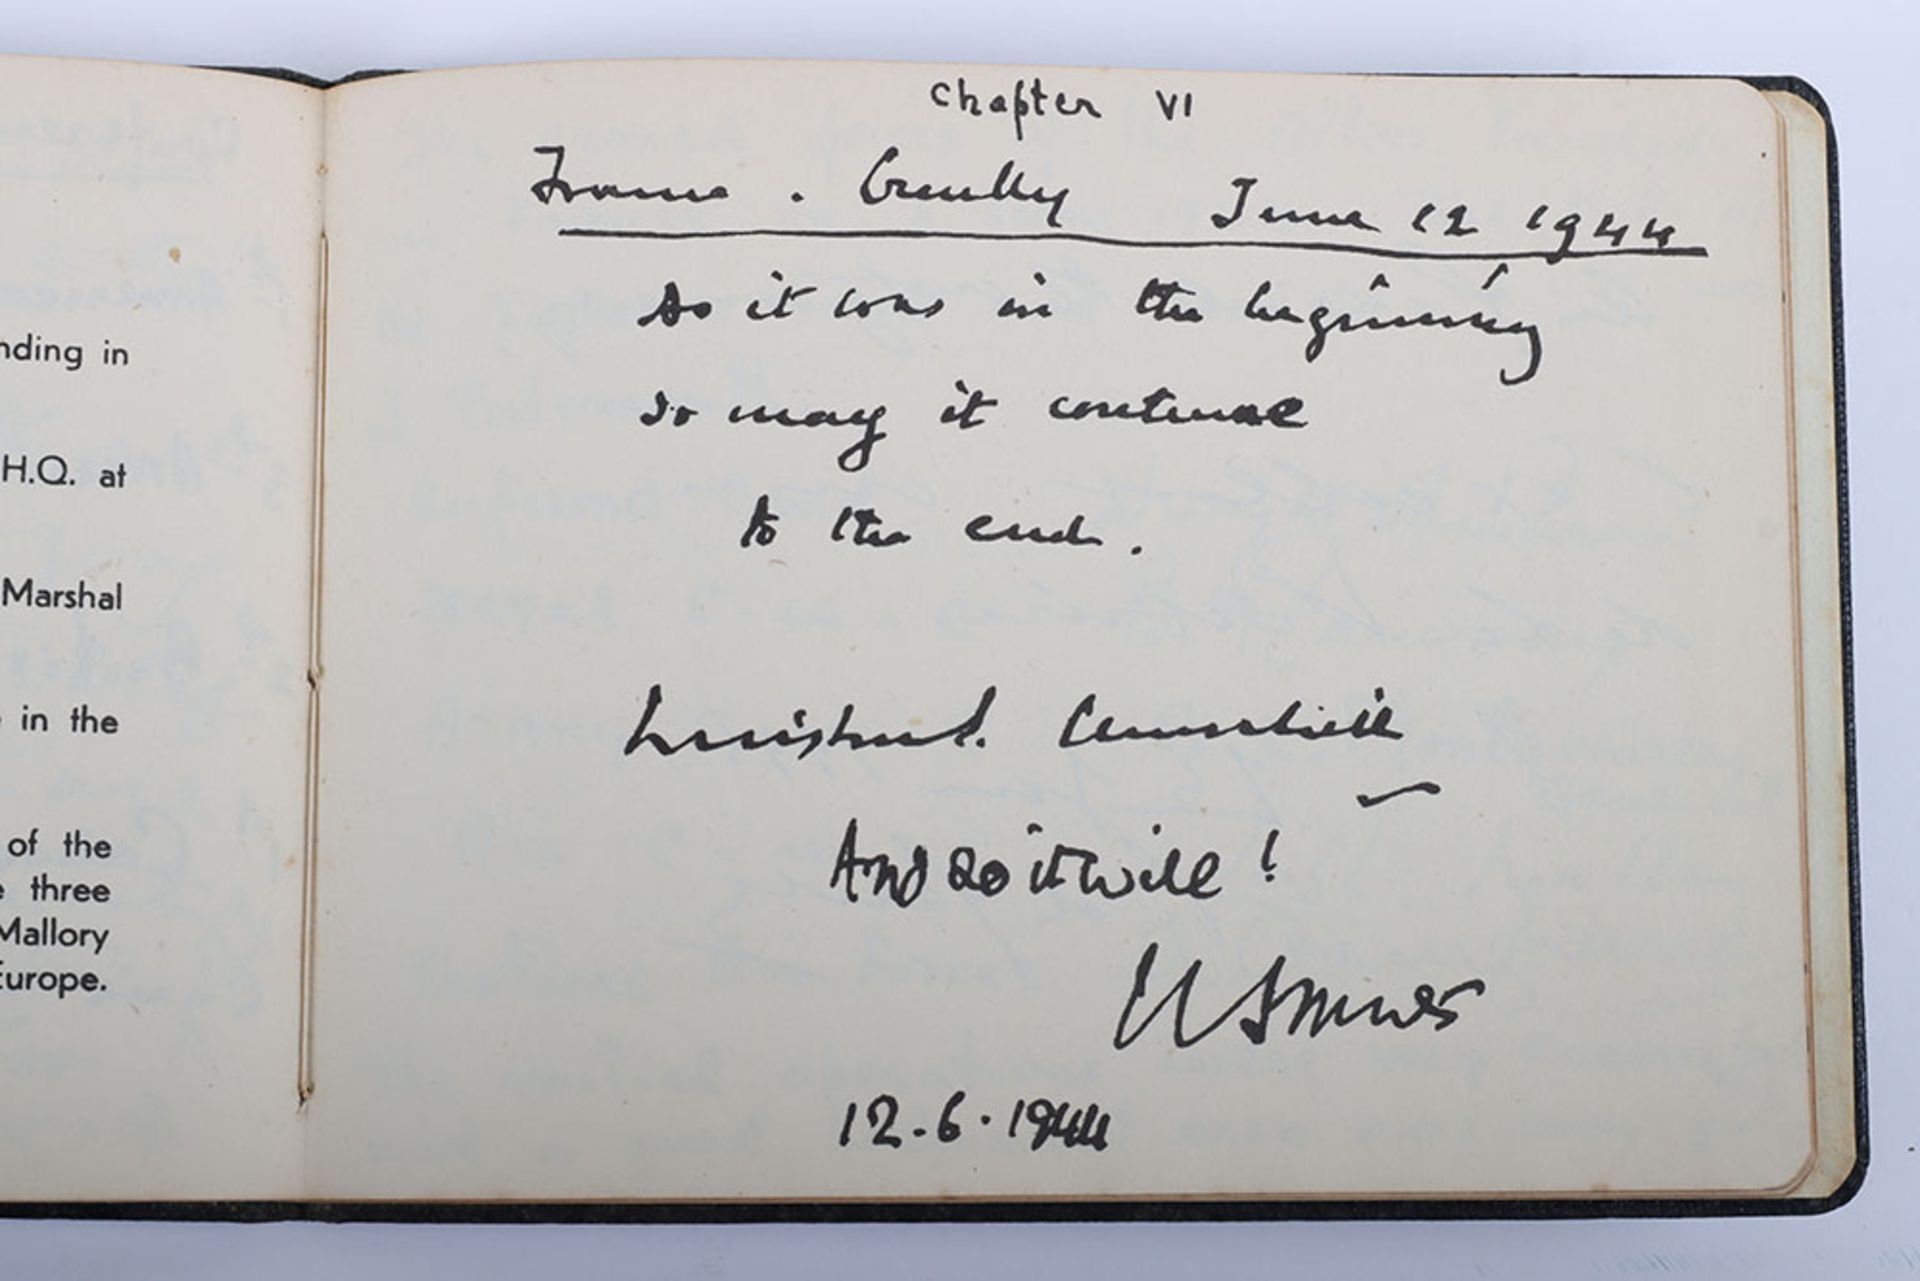 nding in
H.Q. at
Marshal
in the
of the
three
Mallory
Europe.
Chapter VI
France. Creully June 12 1944
As it was in the beginning
so may it continue
to the end.
Winston S. Churchill
And so it will!
12.6.1944